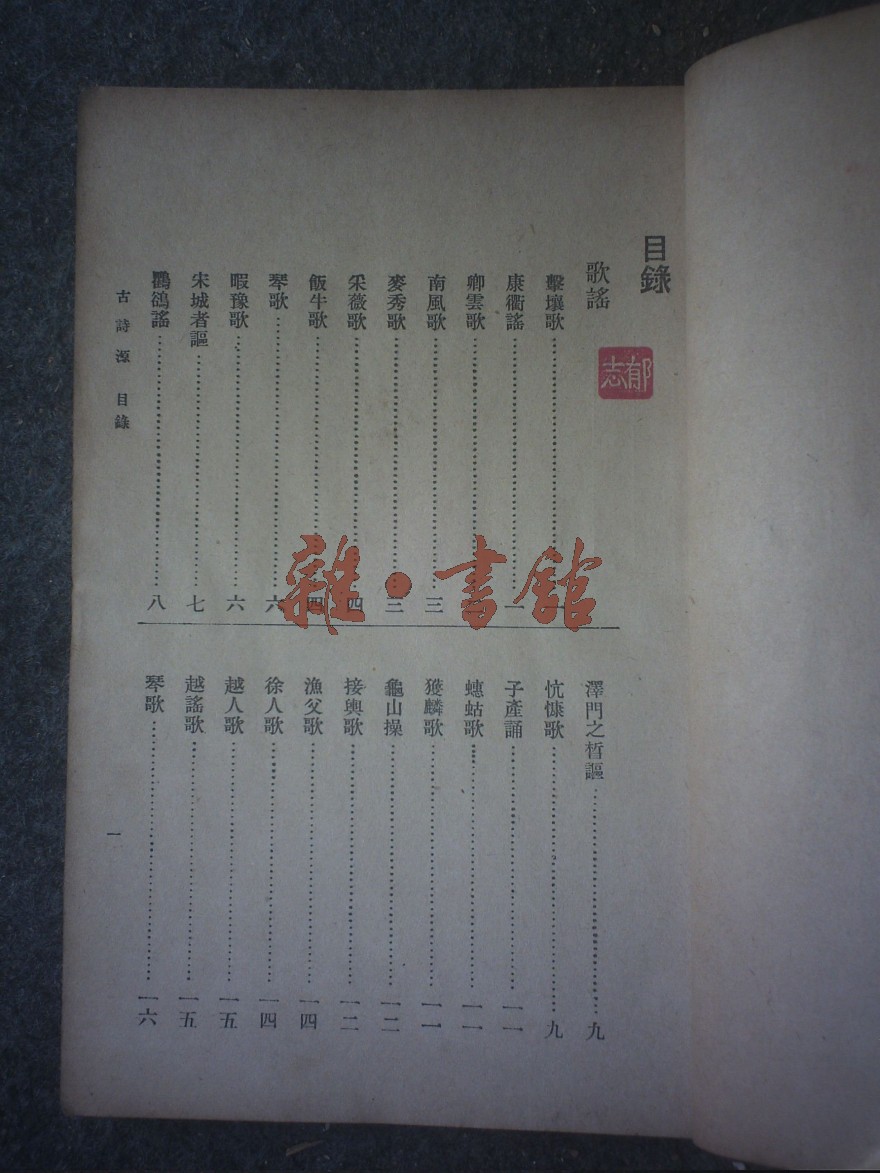 目錄
歌謠
郁志
擊壤歌…………一
康衢謠…………一
卿雲歌…………
南風歌…………三
麥秀歌…………三
采薇歌…………四
飯牛歌…………四
琴歌…………六
暇豫歌…………六
宋城者謳…………七
鸜鵒謠…………八
澤門之晳謳…………九
忼慷歌…………九
子產誦…………一一
蟪蛄歌…………一一
獲麟歌…………一一
龜山操…………一二
接輿歌…………一二
漁父歌…………一四
徐人歌…………一四
越人歌…………一五
越謠歌…………一五
琴歌…………一六
古詩源 目錄
一
雜·書館